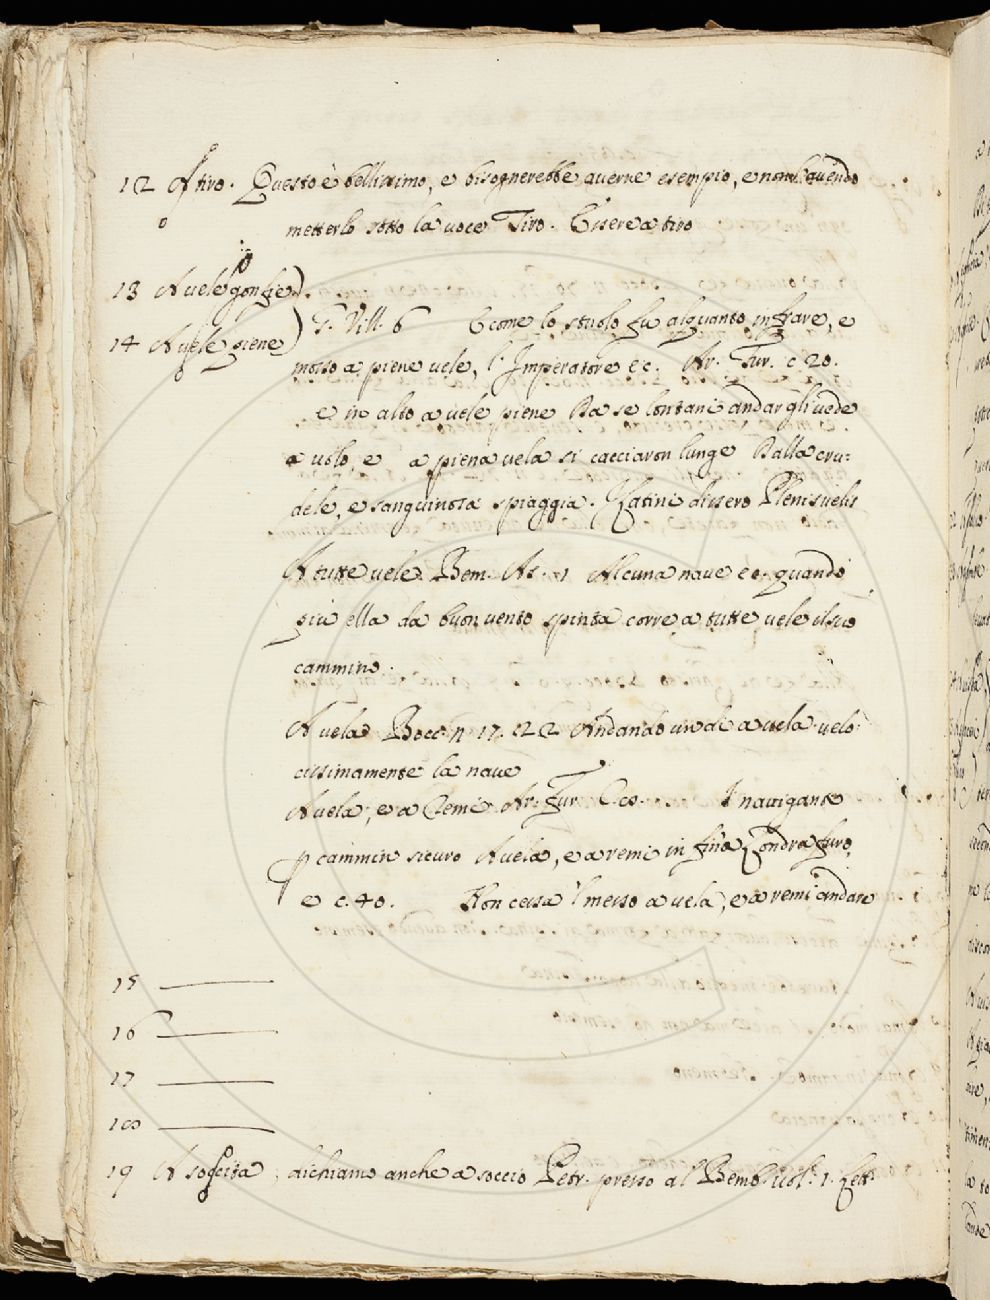 12 A tiro. Questo è bellissimo, e bisognerebbe averne esempio, e non l'avendo
metterlo sotto la voce Tiro. Essere a tiro
13 A vele gonfie)
14 A vele piene) G. Vill. 6 E come lo stuolo fu alquanto infrare, e
mosso a piene vele, l'Imperatore ec. Ar. Fur. c 20.
e in alto a vele piene Da se lontani andar gli vede
a volo, e a piena vela si cacciaron lunge Dalla cru=
dele, e sanguinosa spiaggia. Latini dissero Plenis velis
A tutte vele Bem. As. 1 Alcuna nave ec. quando
più ella da buon vento spinta corre a tutte vele il suo
cammino.
A vela Bocc n 17. 22 Andando un dì a vela velo
cissimamente la nave
A vela, e a remi Ar. Fur. C. Naviganse
p cammin sicuro A vela, e a remi in fin a Londra furo,
e c. 40. Non cessa l' messo a vela, e a remi andare
15
16
17
18
19 A soccita, dichiamo anche a soccio Petr. presso al Bemb. vol. 1. Lett.